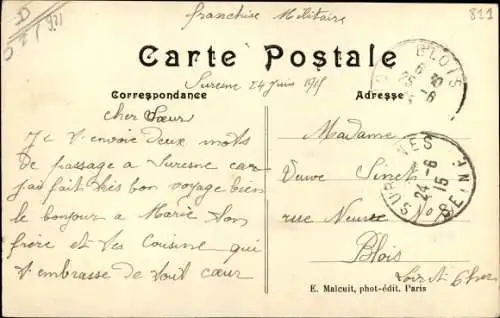 franchise Militaire
811
D
921
Carte Postale
BLOIS
25-6
Suresne 24 Juin 1915
Correspondance
Adresse
cher Sœur
Je t'envoie deux mots
de passage a Suresne car
j'ai fait très bon voyage bien
le bonjour a Marie ton
frère et tes cousine qui
t'embrasse de tout cœur
Madame
Veuve Sinet
rue Neuve No 8
Blois
Loir et Cher
SURESNES
24-6
15
SEINE
E. Malcuit, phot-édit. Paris